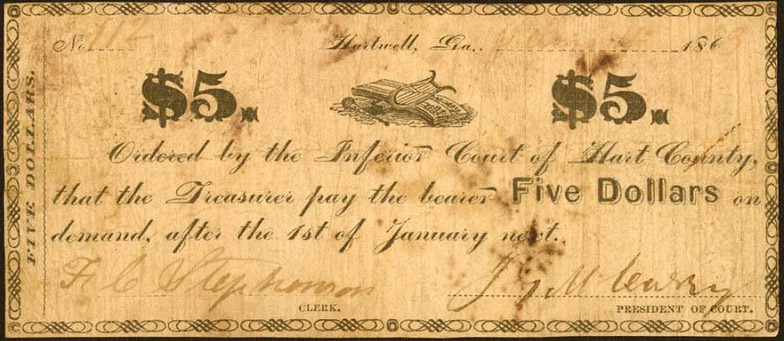 No. 112 Hartwell, Ga., 186
$5. $5.
FIVE DOLLARS.
Ordered by the Inferior Court of Hart County,
that the Treasurer pay the bearer Five Dollars on
demand, after the 1st of January next.
F. C. Stephenson
CLERK. PRESIDENT OF COURT.